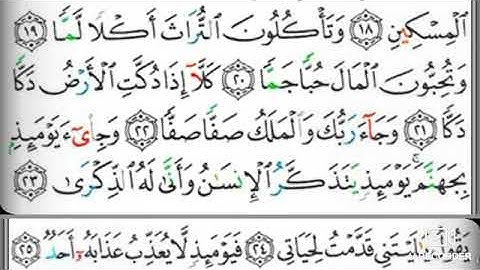 الْمِسْكِينِ ١٨ وَتَأْكُلُونَ التُّرَاثَ أَكْلًا لَّمًّا ١٩
وَتُحِبُّونَ الْمَالَ حُبًّا جَمًّا ٢٠ كَلَّا إِذَا دُكَّتِ الْأَرْضُ دَكًّا
دَكًّا ٢١ وَجَاءَ رَبُّكَ وَالْمَلَكُ صَفًّا صَفًّا ٢٢ وَجِايءَ يَوْمَئِذٍ
بِجَهَنَّمَ ۚ يَوْمَئِذٍ يَتَذَكَّرُ الْإِنسَانُ وَأَنَّىٰ لَهُ الذِّكْرَىٰ ٢٣
يَقُولُ يَالَيْتَنِي قَدَّمْتُ لِحَيَاتِي ٢٤ فَيَوْمَئِذٍ لَّا يُعَذِّبُ عَذَابَهُ أَحَدٌ ٢٥